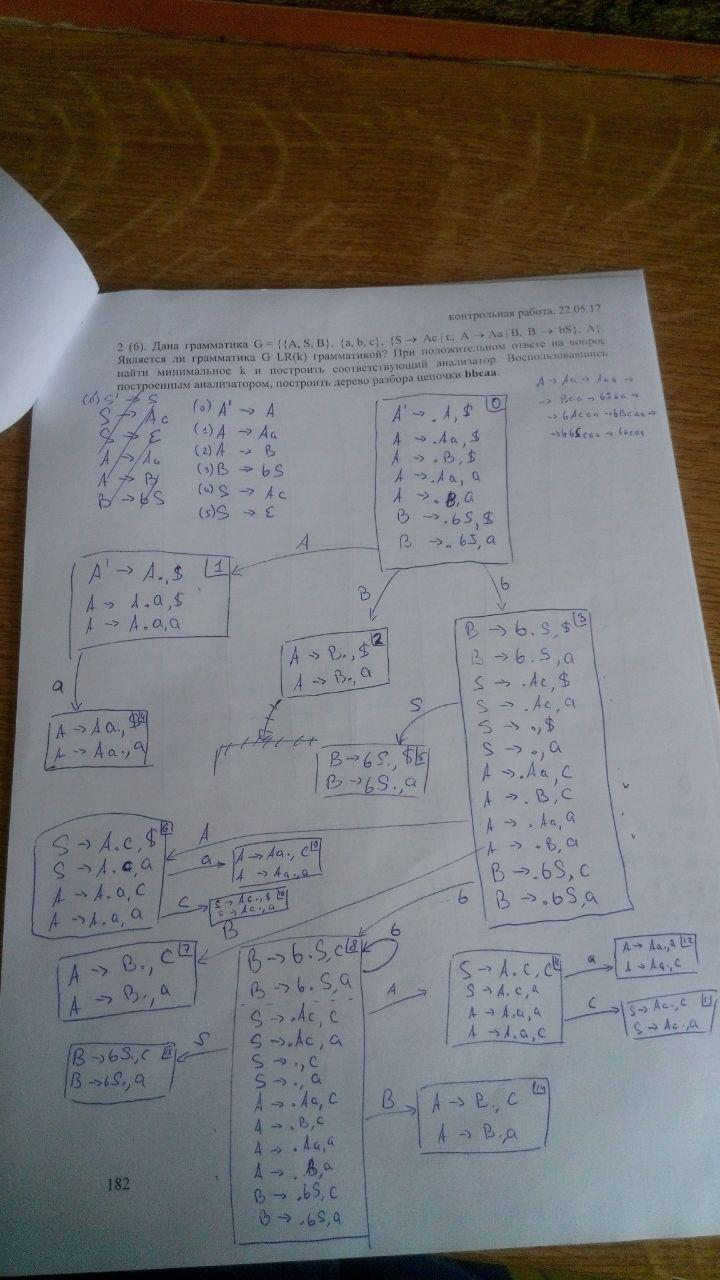 контрольная работа, 22.05.17
2 (6). Дана грамматика G = {{A, S, B}, {a, b, c}, {S → Ac | ε; A → Aa | B, B → bS}, A}.
Является ли грамматика G LR(k) грамматикой? При положительном ответе на вопрос
найти минимальное k и построить соответствующий анализатор. Воспользовавшись
построенным анализатором, построить дерево разбора цепочки bbcaa.
A → Aa → Aaa →
→ Baa → bSaa →
→ bAcaa → bBcaa →
→ bbScaa → bbcaa
(0) S' → S
S → Ac
S → ε
A → Aa
A → B
B → bS
(0) A' → A
(1) A → Aa
(2) A → B
(3) B → bS
(4) S → Ac
(5) S → ε
0
A' → .A, $
A → .Aa, $
A → .B, $
A → .Aa, a
A → .B, a
B → .bS, $
B → .bS, a
A
B
b
1
A' → A., $
A → A.a, $
A → A.a, a
a
2
A → B., $
A → B., a
3
B → b.S, $
B → b.S, a
S → .Ac, $
S → .Ac, a
S → ., $
S → ., a
A → .Aa, c
A → .B, c
A → .Aa, a
A → .B, a
B → .bS, c
B → .bS, a
S
A
B
b
4
A → Aa., $
A → Aa., a
5
B → bS., $
B → bS., a
6
S → A.c, $
S → A.c, a
A → A.a, c
A → A.a, a
a
A → Aa., c
A → Aa., a
c
10
S → Ac., $
S → Ac., a
7
A → B., c
A → B., a
8
B → b.S, c
B → b.S, a
S → .Ac, c
S → .Ac, a
S → ., c
S → ., a
A → .Aa, c
A → .B, c
A → .Aa, a
A → .B, a
B → .bS, c
B → .bS, a
b
A
B
S
11
S → A.c, c
S → A.c, a
A → A.a, a
A → A.a, c
a
12
A → Aa., a
A → Aa., c
c
13
S → Ac., c
S → Ac., a
14
A → B., c
A → B., a
15
B → bS., c
B → bS., a
182